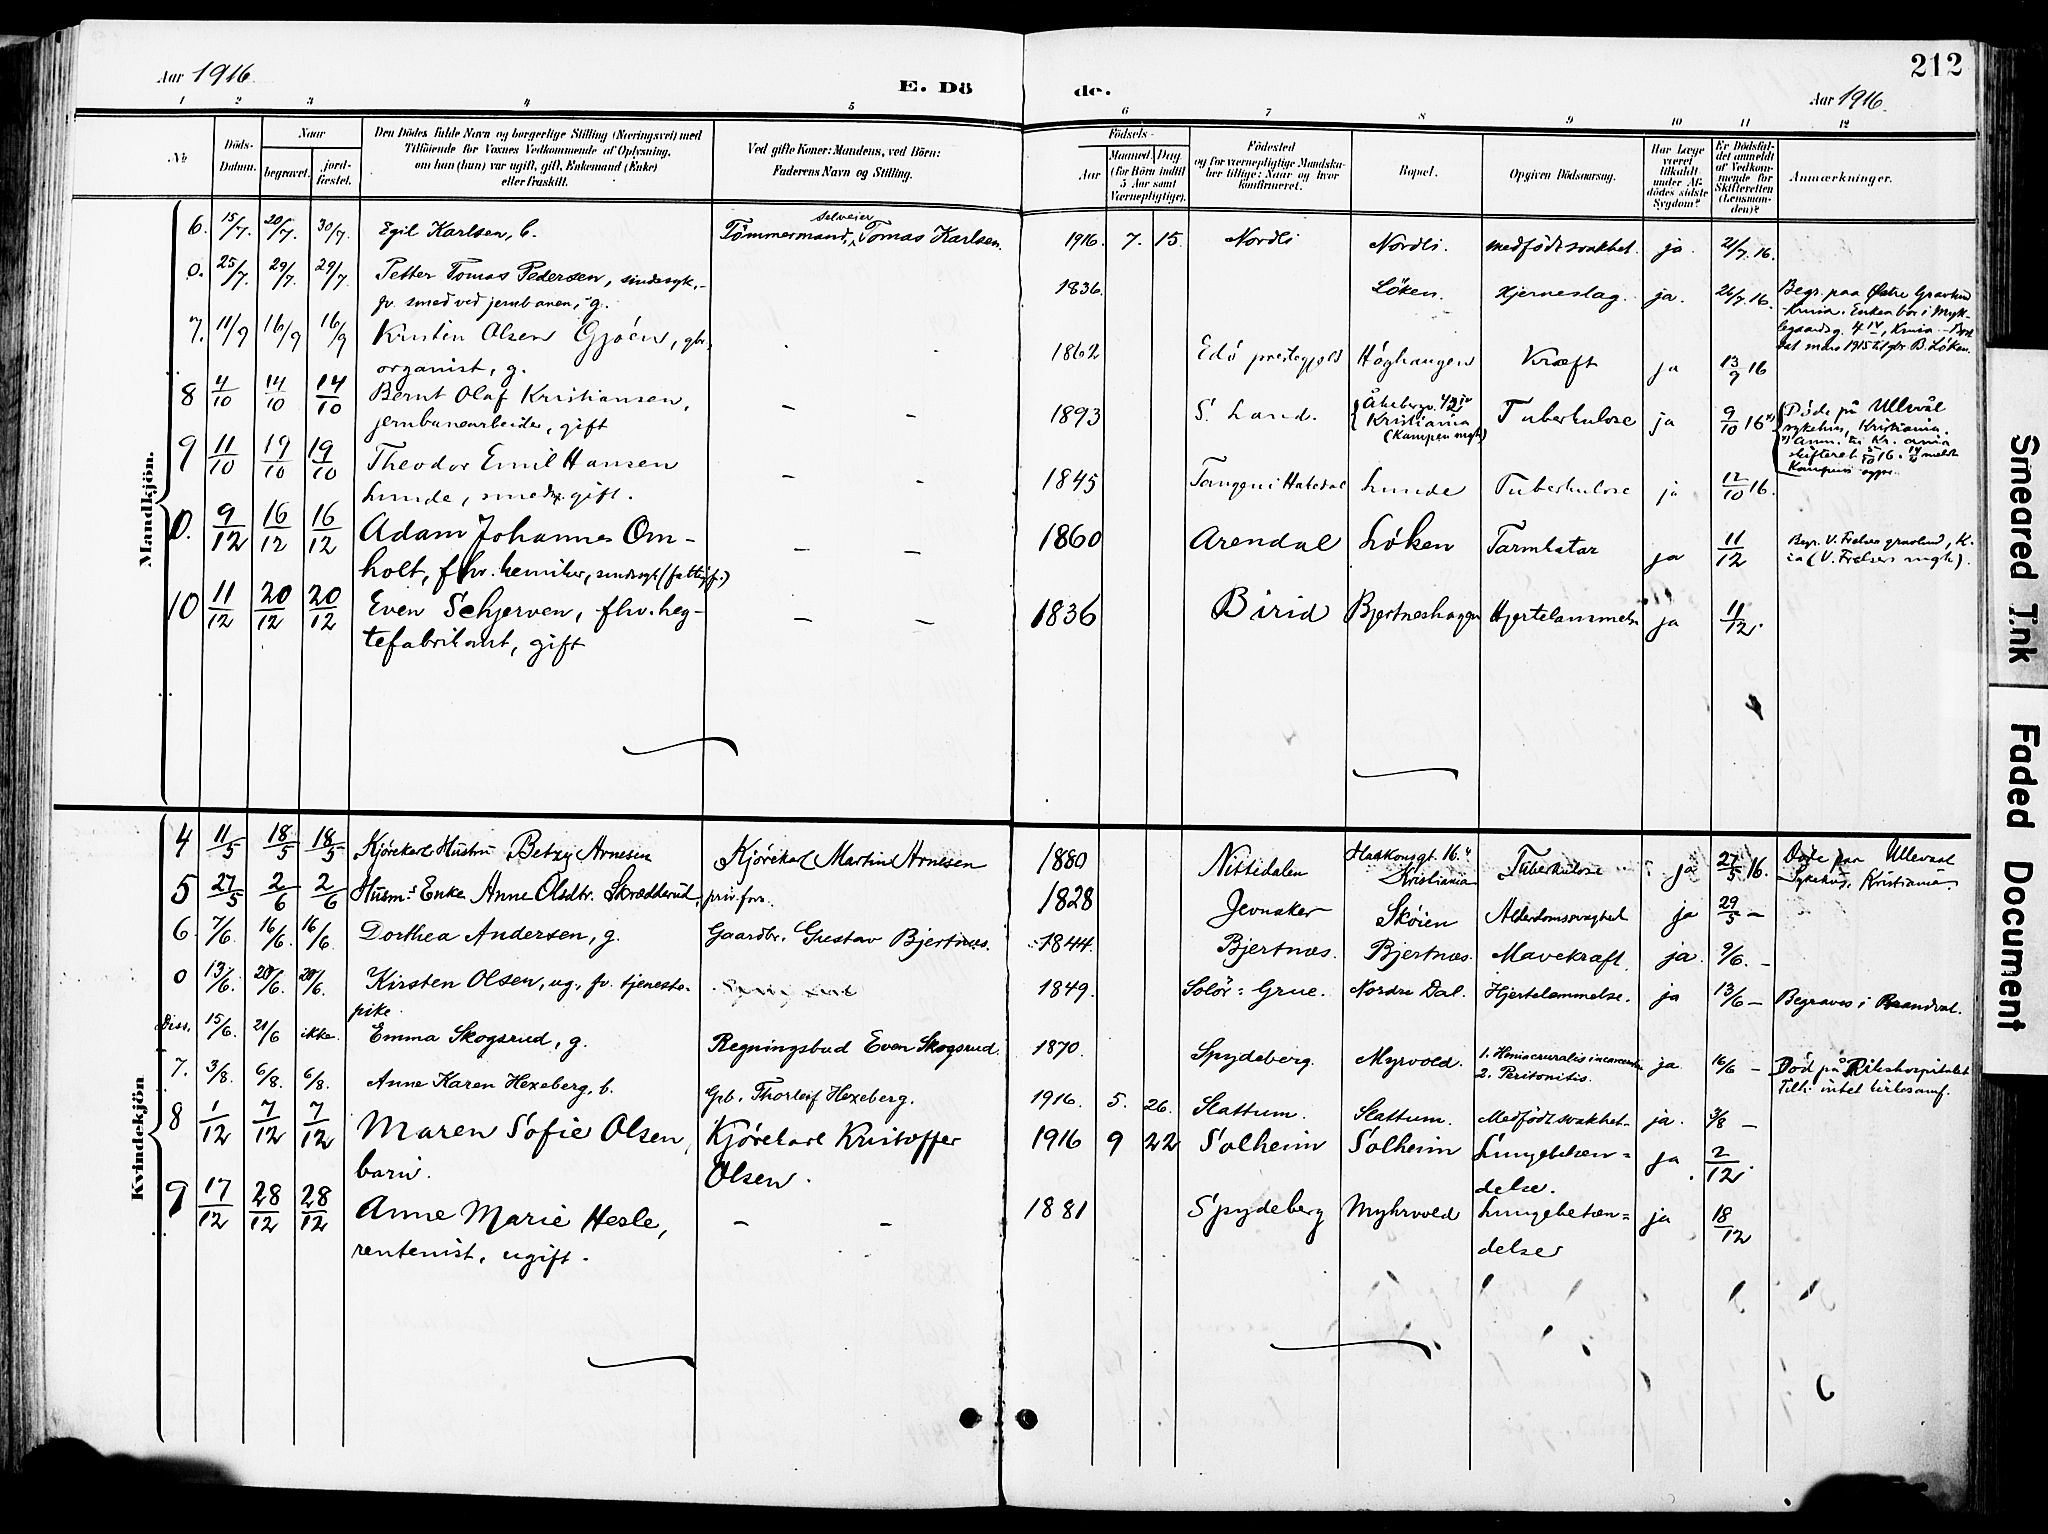 212
Aar 1916. E. Dö de. Aar 1916.
1 2 3 4 5 6 7 8 9 10 11 12
No
Döds-Datum.
Naar
begravet.
jord-fæstet.
Den Dödes fulde Navn og borgerlige Stilling (Næringsvei) med
Tilföiende for Voxnes Vedkommende af Oplysning,
om han (hun) var ugift, gift, Enkemand (Enke)
eller fraskilt.
Ved gifte Koner: Mandens, ved Börn:
Faderens Navn og Stilling.
Födsels-
Aar
Maaned. Dag
(for Börn indtil
5 Aar samt
Værnepligtige).
Födested
og for værnepligtige Mandska-
ber tillige: Naar og hvor
konfirmeret.
Bopæl.
Opgiven Dödsaarsag.
Har Læge
været
tilkaldt
under Af-
dödes sidste
Sygdom?
Er Dödsfal-
det anmeldt
af Vedkom-
mende for
Skifteretten
(Lensman-
den)?
Anmærkninger.
Mandkjön.
6. 15/7. 20/7. 30/7. Egil Karlsen, b. Tömmermand, selveier Tomas Karlsen. 1916. 7. 15. Nordli Nordli. medfödt svakhet. ja. 21/7. 16.
0. 25/7. 29/7. 29/7. Petter Tomas Pedersen, sindssyk,
fv. smed ved jernbanen, g. 1836. Løken. Hjerneslag. ja. 26/7. 16. Begr. paa Østre Gravlund
Krnia. Enken bor i
7. 11/9 16/9 16/9 Kristen Olsen Gjøen,
organist, g. 1862 Edö prestegjeld Höghaugen Kræft ja 13/9 16
8 4/10 14/10 14/10 Bernt Olaf Kristiansen,
jernbanearbeider, gift – – 1893 S. Land. Kristiania
(Kampen mgh) Tuberkulose ja 9/10 16 Döde på Ullevål
sykehus, Kristiania.
9 11/10 19/10 19/10 Theodor Emil Hansen
Lunde, smed, gift. – – 1845 Tangen i Hakadal Lunde Tuberkulose ja 12/10 16.
0. 9/12 16/12 16/12 Adam Johannes Om-
holt, fhv. kemiker, sindssyk – – 1860 Arendal Løken Tarmkatar ja 11/12 Begr. V. Frelsers gravlund, K.
ia (V. Frelsers mgh).
10 11/12 20/12 20/12 Even Schjerven, fhv. heg-
tefabrikant, gift – – 1836 Birid Bjertneshagen Hjertelammelse ja 11/12.
Kvindekjön
4 11/5 18/5 18/5 Kjørekarls Hustru Betzy Arnesen Kjørekarl Martin Arnesen 1880 Nittedalen Haakonsgt. 16.
Kristiania Tuberkulose ja 27/5 16. Døde paa Ullevaal
Sykehus, Kristiania
5 27/5 2/6 2/6 Husm.s Enke Anne Olsdtr. Skrædderud, priv. fors. 1828 Jevnaker Skøien Alderdomssvaghed ja 29/5 –
6. 7/6. 16/6. 16/6. Dorthea Andersen, g. Gaardbr. Gustav Bjertnæs. 1844. Bjertnæs. Bjertnæs. Mavekræft. ja. 9/6. –
0 13/6. 20/6. 20/6. Kirsten Olsen, ug., fv. tjeneste-
pike. 1849. Solör: Grue. Nordre Dal. Hjertelammelse. ja 13/6 – Begraves i Brandval.
Diss. 15/6. 21/6 ikke. Emma Skogsrud, g. Regningsbud Even Skogsrud. 1870. Spydeberg. Myrvold. 1. Hernia cruralis incarcerata
2. Peritonitis. ja. 16/6 – Död på Rikshospitalet
Tilh. intet kirkesamf.
7. 3/8. 6/8. 6/8. Anne Karen Hexeberg, b. Gb. Thorleif Hexeberg. 1916. 5. 26. Slattum. Slattum. Medfödt svakhet. ja. 3/8 –
8 1/12 7/12 7/12 Maren Sofie Olsen,
barn. Kjørekarl Kristoffer
Olsen. 1916 9 22 Solheim Solheim Lungebetæn-
delse. ja 2/12.
9 17/12 28/12 28/12 Anne Marie Hesle,
rentenist, ugift. – – 1881 Spydeberg Myhrvold Lungebetæn-
delse ja 18/12
Smeared Ink
Faded Document